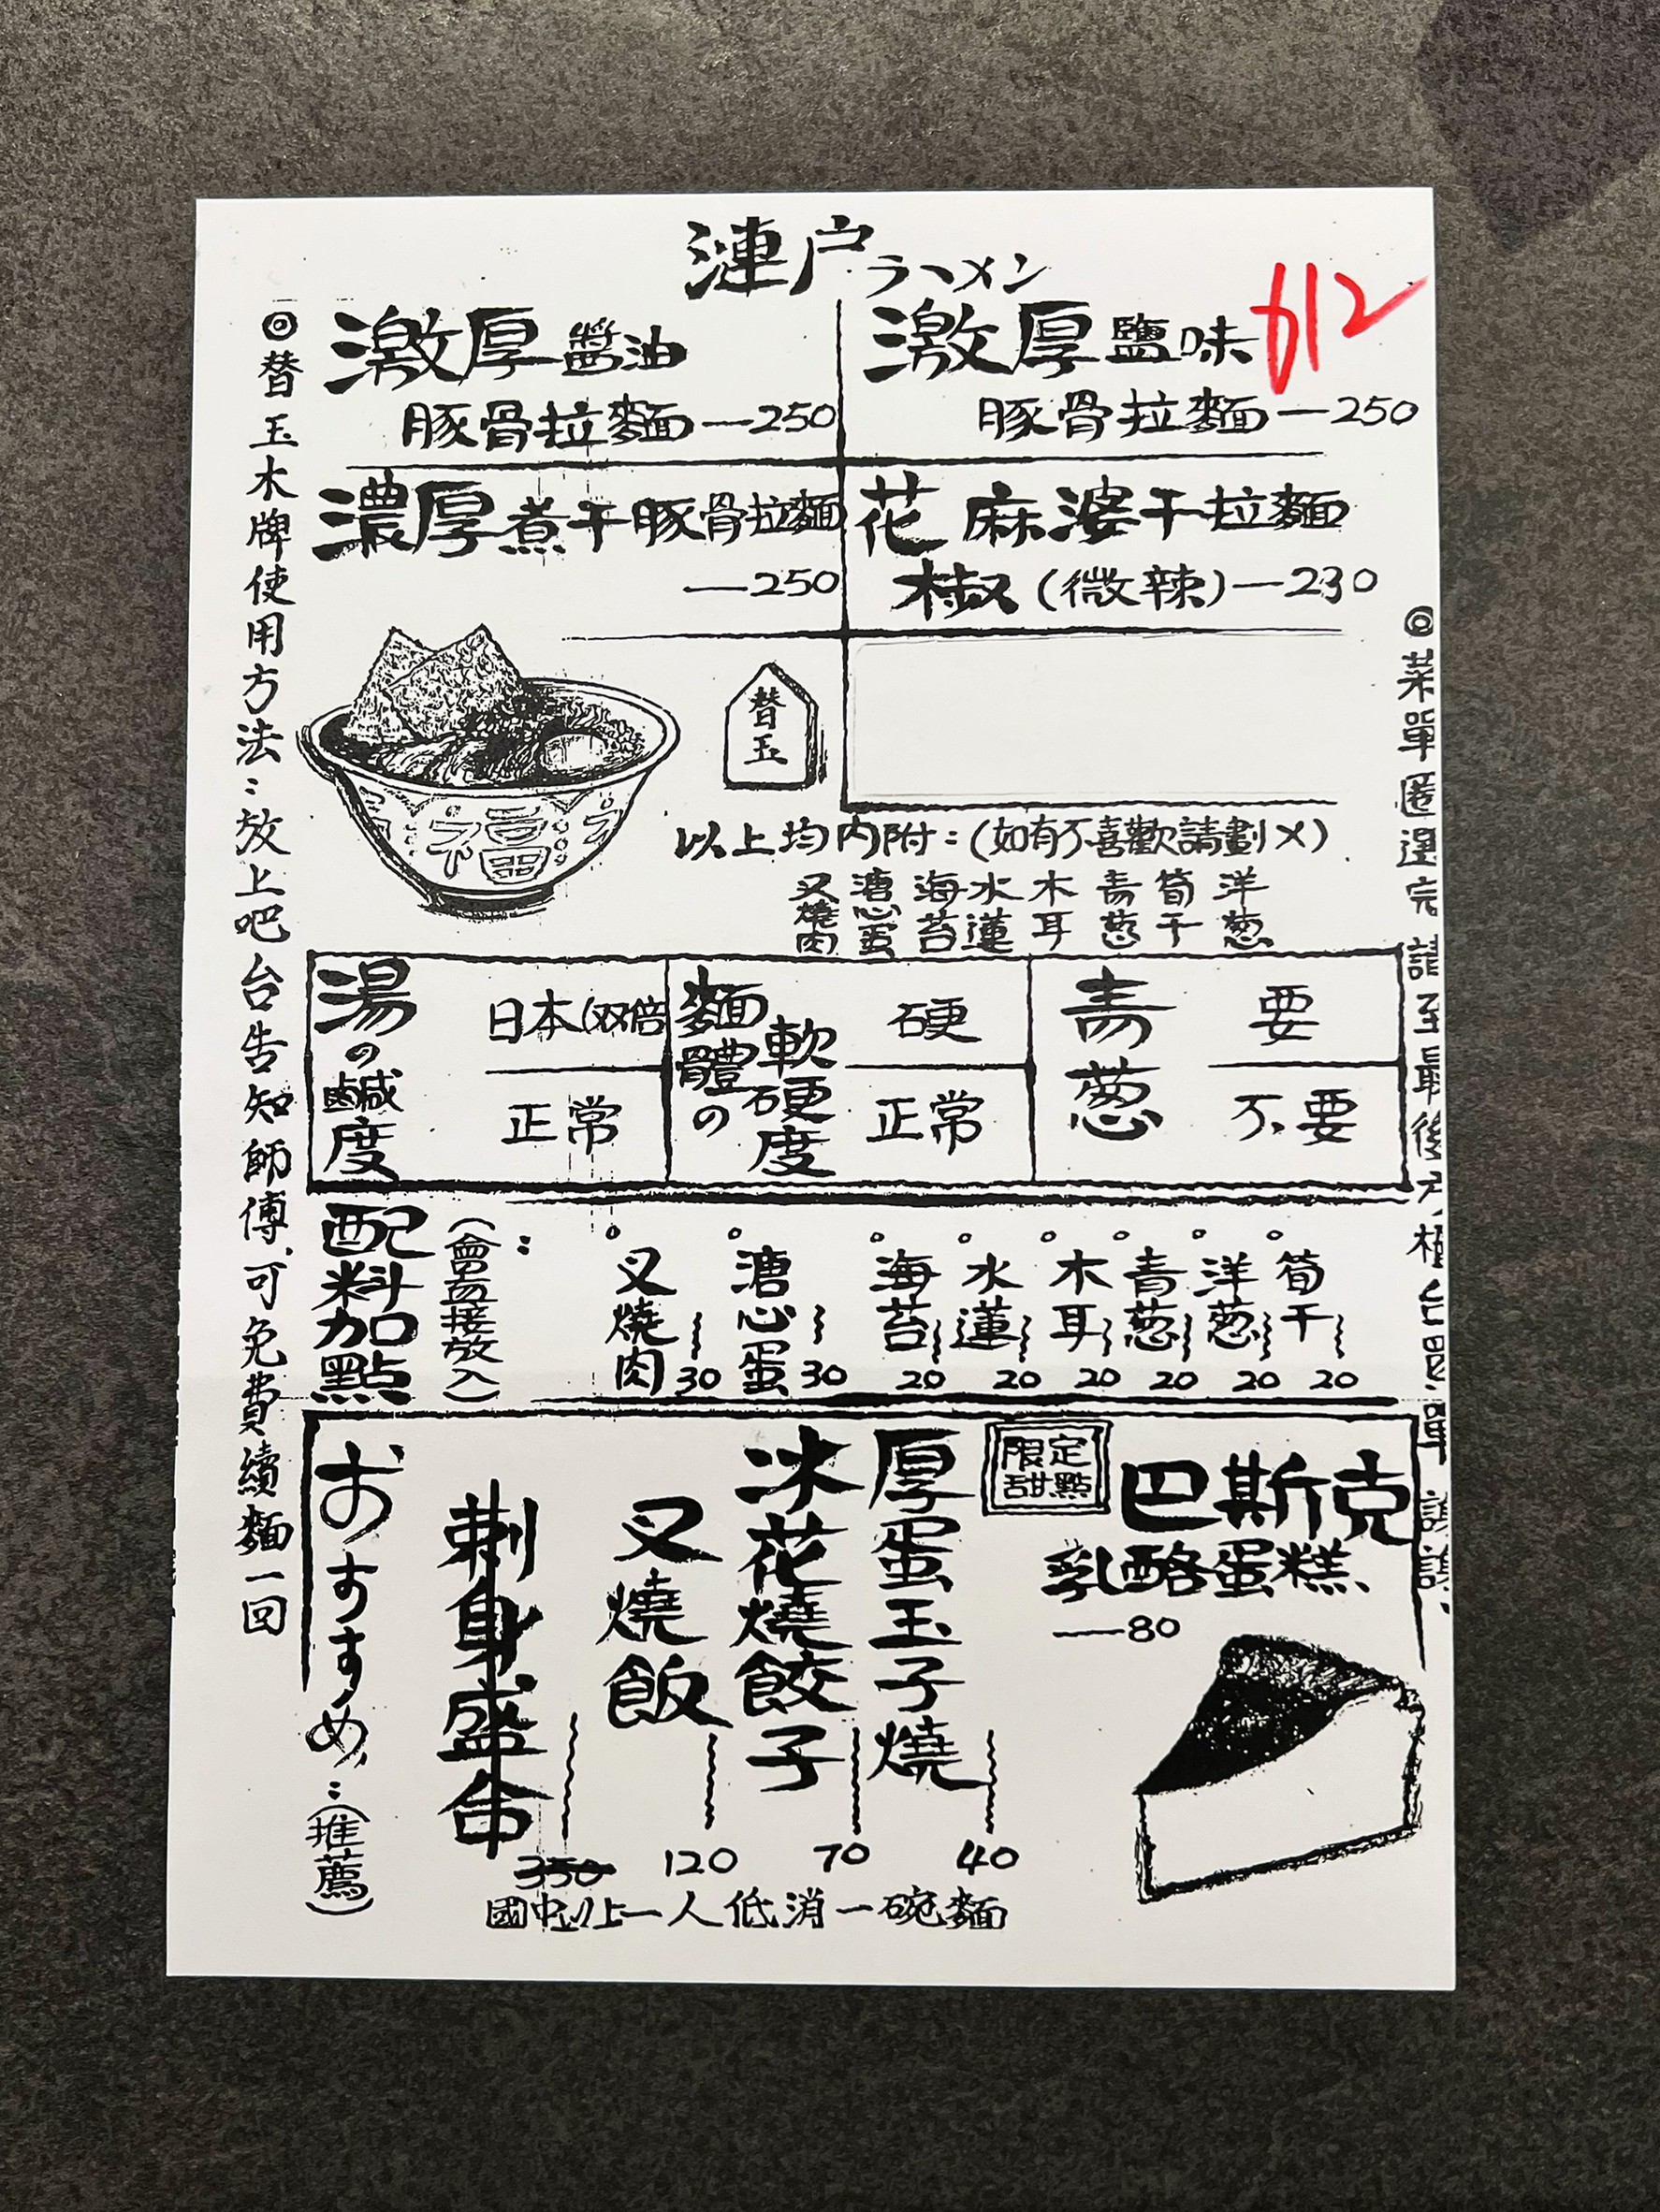 漣户ラーメン
612
激厚醬油
豚骨拉麵—250
激厚鹽味
豚骨拉麵—250
濃厚煮干豚骨拉麵
—250
花椒麻婆干拉麵
(微辣)—230
替玉
福
以上均內附:(如有不喜歡請劃X)
叉燒肉
溏心蛋
海苔
水蓮
木耳
青葱
筍干
洋葱
◎替玉木牌使用方法:放上吧台告知師傅,可免費續麵一回
◎菜單圈選完請至最後方櫃台買單 謝謝
湯の鹹度
日本(双倍
正常
麵體の軟硬度
硬
正常
青葱
要
不要
配料加點
(會直接放入):
叉燒肉 30
溏心蛋 30
海苔 20
水蓮 20
木耳 20
青葱 20
洋葱 20
筍干 20
おすすめ:(推薦)
刺身盛合 350
叉燒飯 120
冰花燒餃子 70
厚蛋玉子燒 40
限定甜點
巴斯克
乳酪蛋糕
—80
國中以上一人低消一碗麵